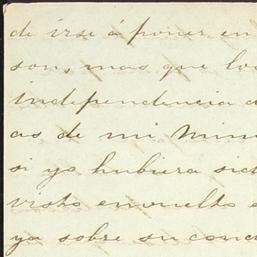 de irse á poner en
son, mas que lo
independencia
as de mi
si yo hubiera sid
visto envuelto e
ya sobre su cond